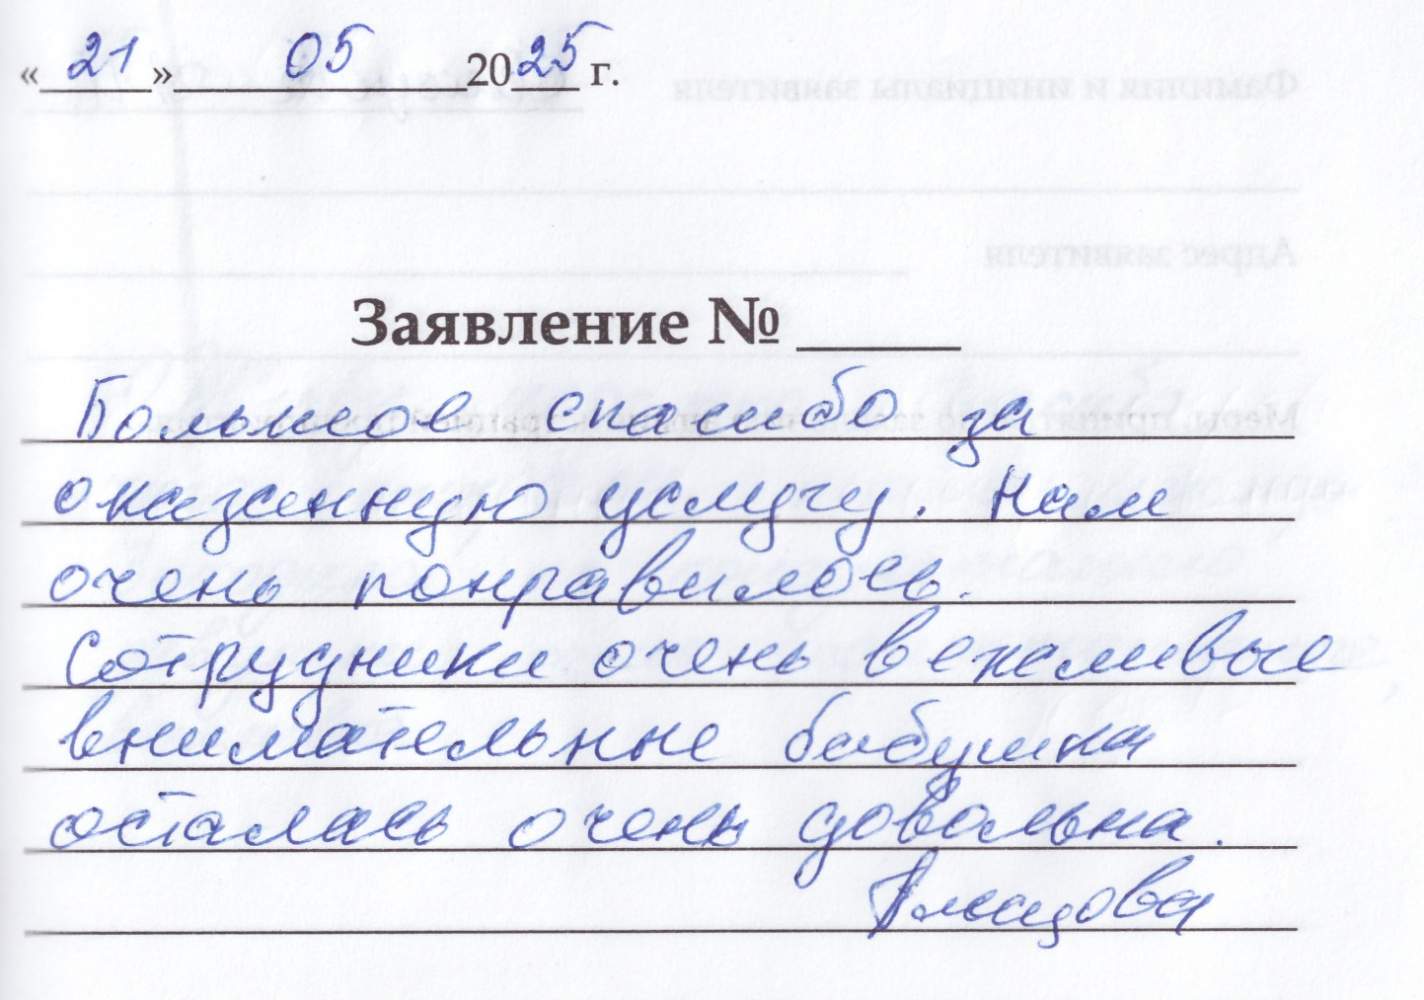 « 21 » 05 2025 г.
Заявление № ____
Большое спасибо за
оказанную услугу. Нам
очень понравилось.
Сотрудники очень вежливые
внимательные бабушка
осталась очень довольна.